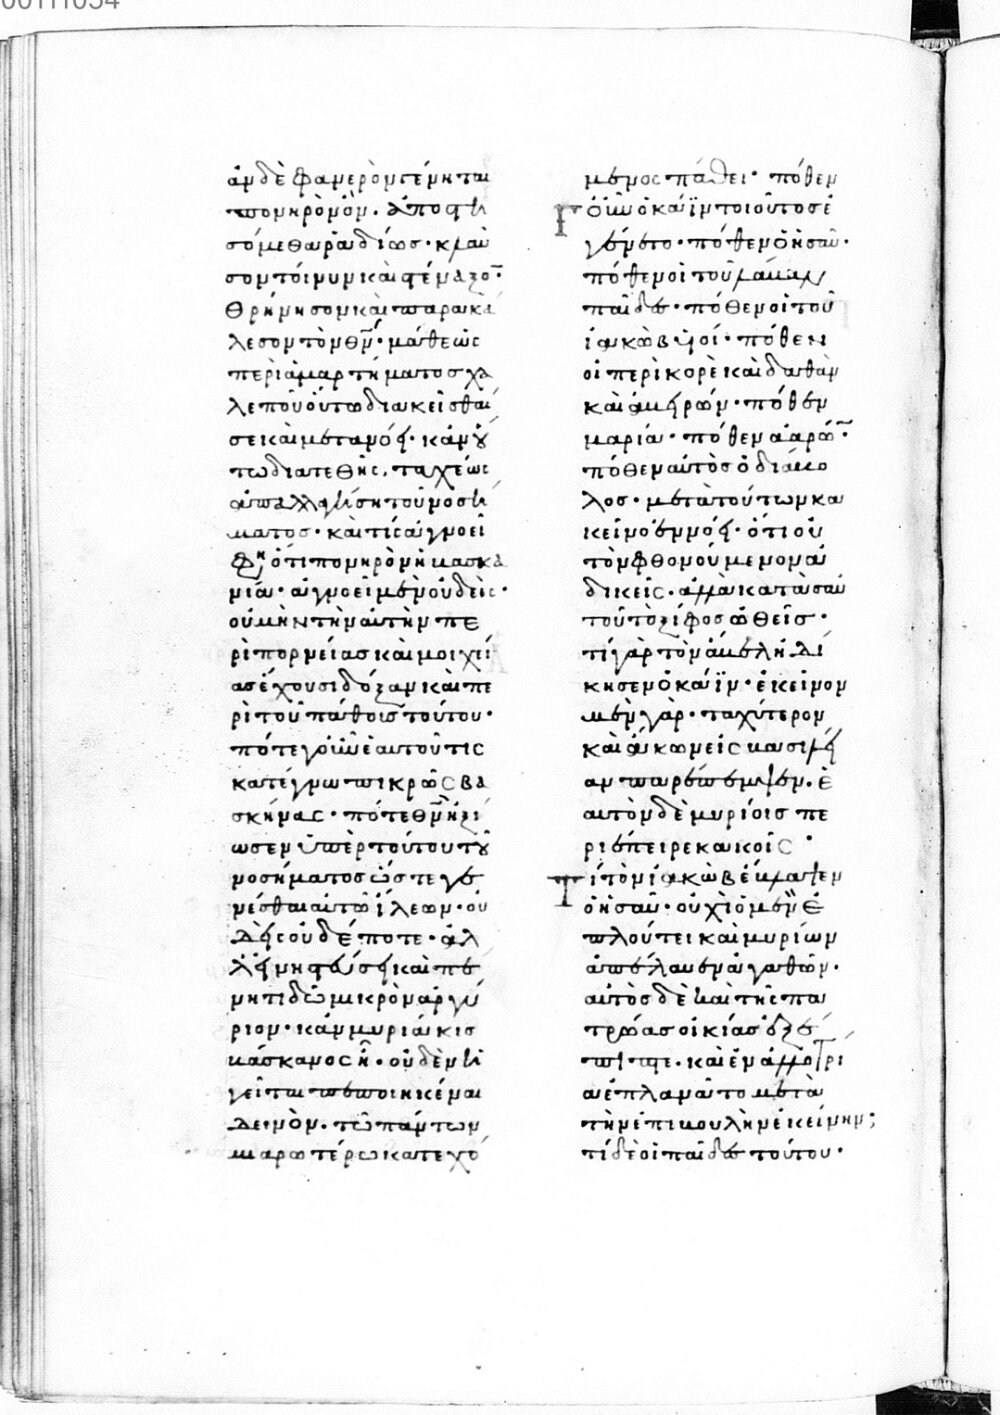 ἂν δὲ φανερὸν γένηται
πονηρὸν ὂν. ἀποστη
σόμεθα ῥαδίως· κλαῦ
σον τοίνυν καὶ στέναξο̅·
θρήνησον καὶ παρακά
λεσον τὸν θν̅· μάθε ὡς
περὶ ἁμαρτήματος χα
λεποῦ οὕτω διακεῖσθαί
σε καὶ μετανόει· κἂν οὕ
τω διατεθῆις, ταχέως
ἀπαλλαγήσηι τοῦ νοσή
ματος· καὶ τίς ἀγνοεῖ
φη ὅτι πονηρὸν ἡ βασκα
νία· ἀγνοεῖ μὲν οὐδείς·
οὐ μὴν τὴν αὐτὴν πε
ρὶ πορνείας καὶ μοιχεί
ας ἔχουσι δόξαν καὶ πε
ρὶ τοῦ πάθους τούτου·
πότε γοῦν ἑαυτοῦ τις
κατέγνω πικρῶς βα
σκήνας· πότε θν̅ ἠξί
ωσεν ὑπὲρ τούτου τοῦ
νοσήματος ὥστε γε
νέσθαι αὐτῶ ἵλεων· οὐ
δεὶς οὐδέποτε· ἀλ
λ' εἰ νηστεύσει καὶ πέ
νητι δῶ μικρὸν ἀργύ
ριον· κἂν μυριάκις
βάσκανος ἦ· οὐδὲν ἡ
γεῖται πεποιηκέναι
δεινὸν. τῶ πάντων
μιαρωτέρω κατεχό
μενος πάθει· πόθεν
γοῦν ὁ κάϊν τοιοῦτος ἐ
γένετο· πόθεν ὁ ἠσαῦ·
πόθεν οἱ τοῦ λάβαν
παῖδες· πόθεν οἱ τοῦ
ἰακὼβ υἱοί· πόθεν
οἱ περὶ κορὲ καὶ δαθὰν
καὶ ἀβειρών· πόθεν
μαρία· πόθεν ἀαρώ̅·
πόθεν αὐτὸς ὁ διάβο
λος· μετὰ τούτων κα
κεῖνο ἐννόει· ὅτι οὐ
τὸν φθονούμενον ἀ
δικεῖς· ἀλλὰ κατὰ σαυ
τοῦ τὸ ξίφος ὠθεῖς·
τί γὰρ τὸν ἄβελ ἠδί
κησεν ὁ κάϊν· ἐκεῖνον
μὲν γὰρ· ταχύτερον
καὶ ἄκων εἰς βασιλεί
αν παρέπεμψεν. ἑ
αυτὸν δὲ μυρίοις πε
ριέπειρε κακοῖς·
τί τὸν ἰακὼβ ἔβλαψεν
ὁ ἠσαῦ· οὐχὶ ὁ μὲν ἐ
πλούτει καὶ μυρίων
ἀπέλαυεν ἀγαθῶν·
αὐτὸς δὲ καὶ τῆς πα
τρώας οἰκίας ἐξέ
πιπτε. καὶ ἐν ἀλλοτρί
α ἐπλανᾶτο μετὰ
τὴν ἐπιβουλὴν ἐκείνην;
τί δὲ οἱ παῖδες τούτου·